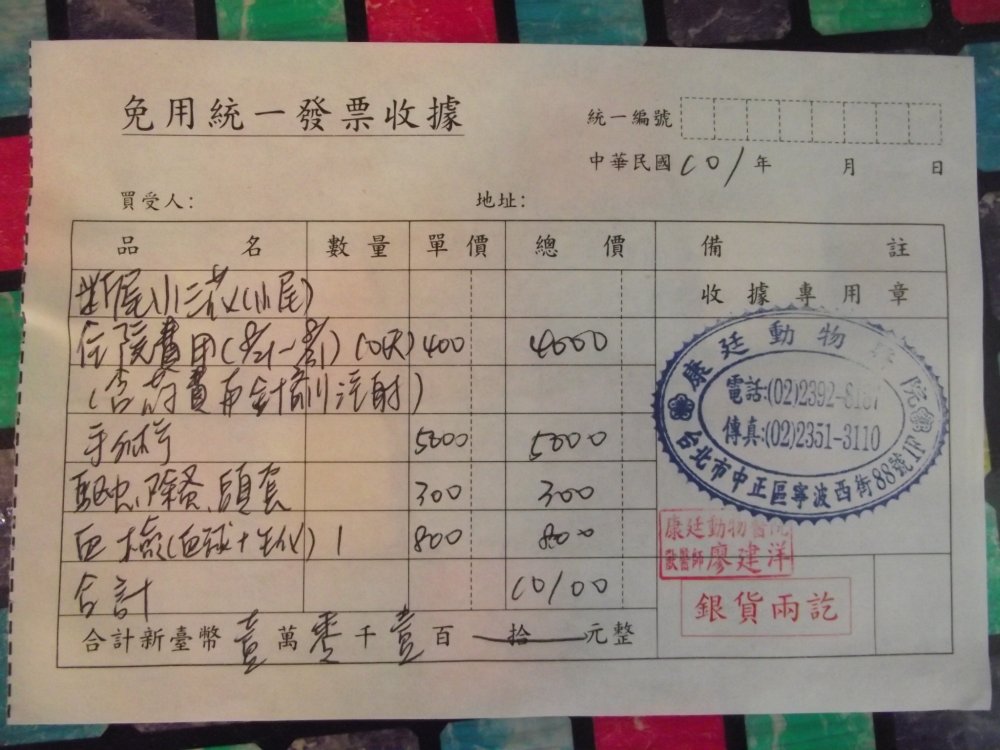 免用統一發票收據
統一編號
中華民國101年 月 日
買受人: 地址:
品名 數量 單價 總價 備註
斷尾小三花(小尾)
收據專用章
住院費用( ) 10天 400 4000
(含藥費 針劑注射)
手術 5000 5000
驅虫、除蚤、頭套 300 300
血檢(血球+生化) 1 800 800
合計 10100
合計新臺幣壹萬零千壹百拾元整
康廷動物醫院
電話:(02)2392-8187
傳真:(02)2351-3110
台北市中正區寧波西街88號1F
康廷動物醫院
獸醫師廖建洋
銀貨兩訖